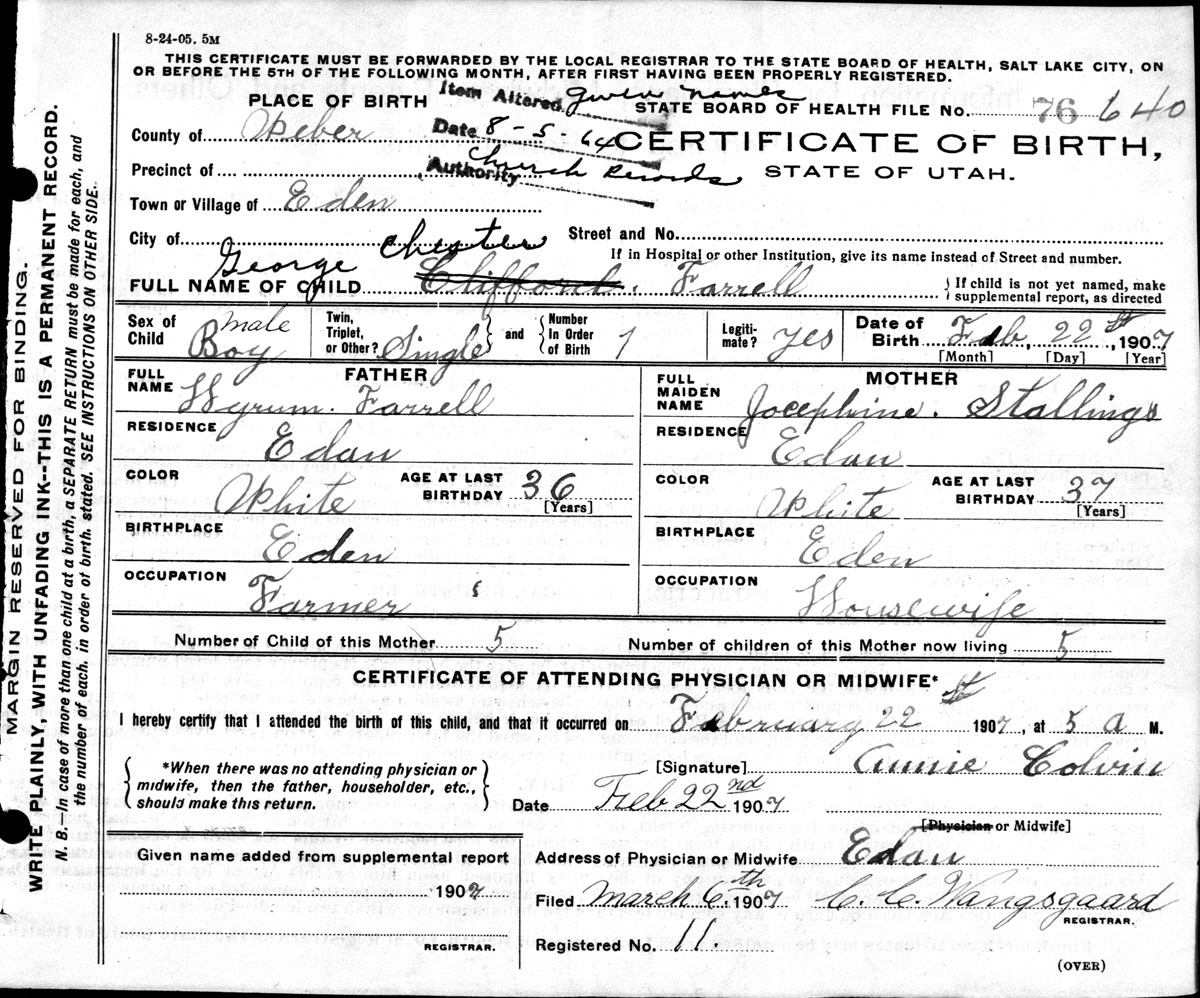 8-24-05. 5M
THIS CERTIFICATE MUST BE FORWARDED BY THE LOCAL REGISTRAR TO THE STATE BOARD OF HEALTH, SALT LAKE CITY, ON
OR BEFORE THE 5TH OF THE FOLLOWING MONTH, AFTER FIRST HAVING BEEN PROPERLY REGISTERED.
PLACE OF BIRTH Item Altered given names STATE BOARD OF HEALTH FILE No. 76 640
County of Weber Date 8-5-64 CERTIFICATE OF BIRTH,
Precinct of Authority Church Records STATE OF UTAH.
Town or Village of Eden
City of Street and No.
If in Hospital or other Institution, give its name instead of Street and number.
George Chester
FULL NAME OF CHILD Clifford. Farrell { If child is not yet named, make supplemental report, as directed
Sex of Child Boy male Twin, Triplet, or Other? Single and Number In Order of Birth 1 Legiti-mate? Yes Date of Birth Feb, 22 st, 1907
[Month] [Day] [Year]
FATHER MOTHER
FULL NAME Hyrum. Farrell FULL MAIDEN NAME Josephine. Stallings
RESIDENCE Edan RESIDENCE Edan
COLOR White AGE AT LAST BIRTHDAY 36 [Years] COLOR White AGE AT LAST BIRTHDAY 37 [Years]
BIRTHPLACE Eden BIRTHPLACE Eden
OCCUPATION Farmer OCCUPATION Housewife
Number of Child of this Mother 5 Number of children of this Mother now living 5
CERTIFICATE OF ATTENDING PHYSICIAN OR MIDWIFE*
I hereby certify that I attended the birth of this child, and that it occurred on February 22 st 1907, at 5 a M.
*When there was no attending physician or
midwife, then the father, householder, etc.,
should make this return.
[Signature] Annie Colvin
Date Feb 22nd 1907
[Physician or Midwife]
Given name added from supplemental report
1907
REGISTRAR.
Address of Physician or Midwife Edan
Filed March 6th. 1907 C. C. Wangsgaard
REGISTRAR.
Registered No. 11.
(OVER)
MARGIN RESERVED FOR BINDING.
WRITE PLAINLY, WITH UNFADING INK--THIS IS A PERMANENT RECORD.
N. B.--In case of more than one child at a birth, a SEPARATE RETURN must be made for each, and
the number of each, in order of birth, stated. SEE INSTRUCTIONS ON OTHER SIDE.